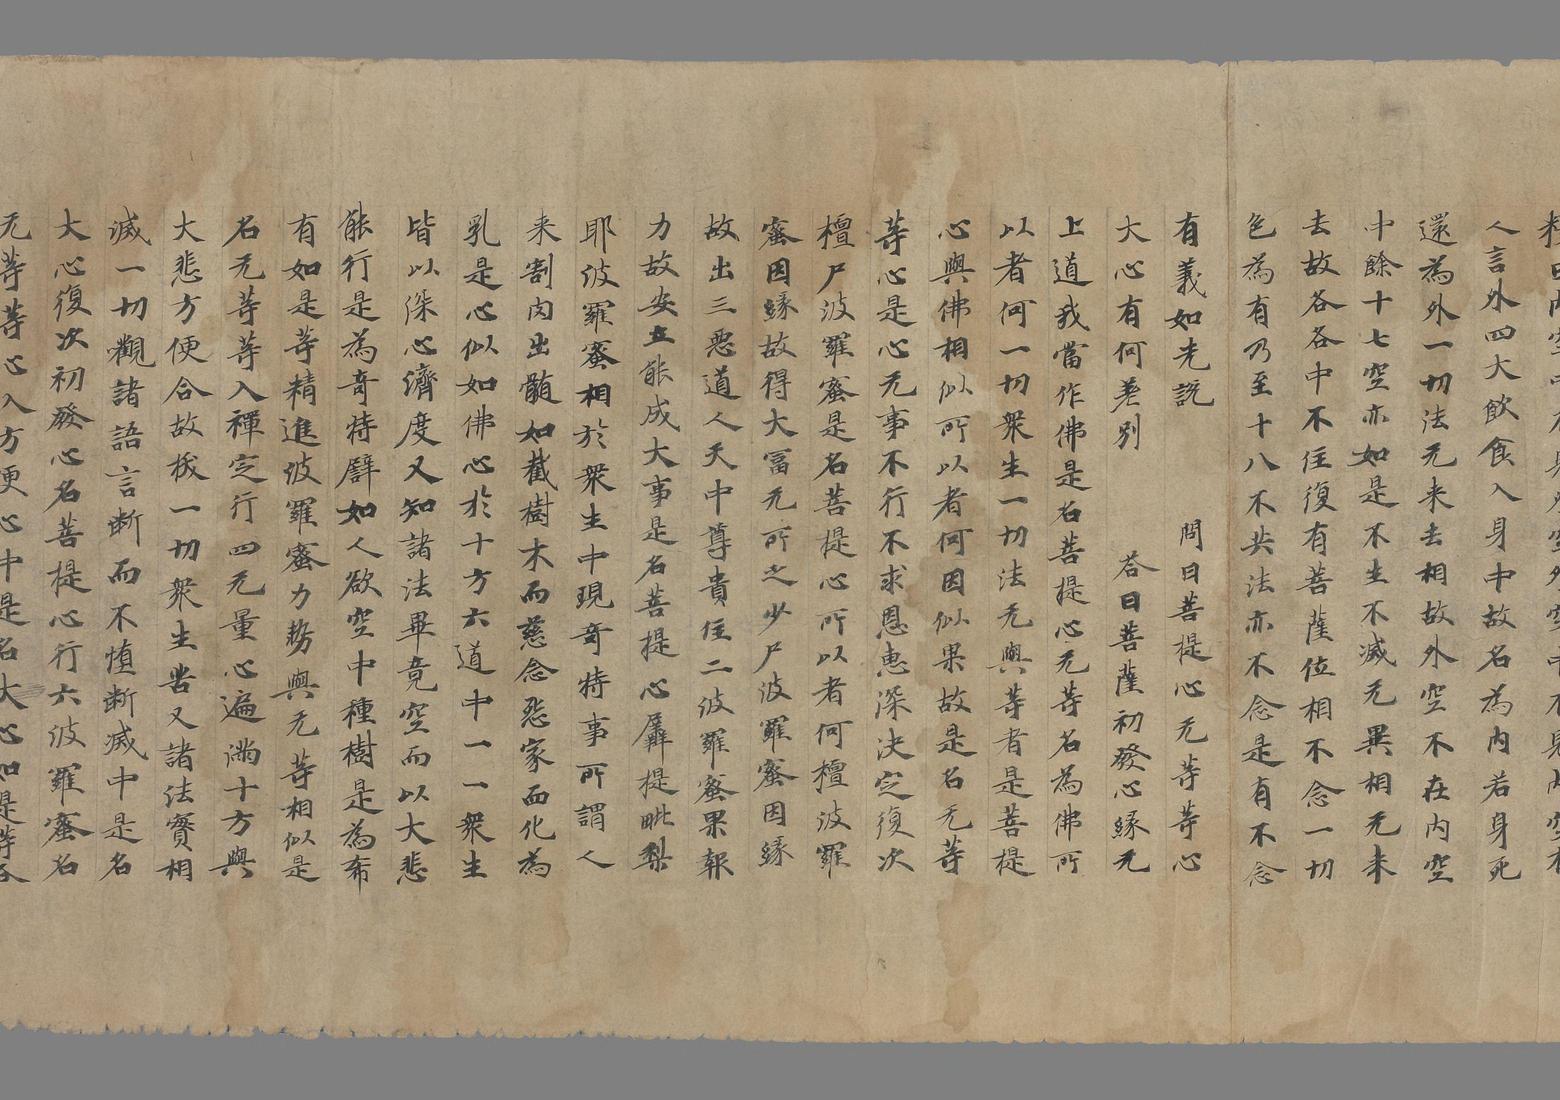 人言外四大飲食入身中故名為内若身死
還為外一切法无来去相故外空不在内空
中餘十七空亦如是不生不滅无異相无来
去故各各中不住復有菩薩位相不念一切
色為有乃至十八不共法亦不念是有不念
有義如先説 問曰菩提心无等等心
大心有何差別 答曰菩薩初發心縁无
上道我當作佛是名菩提心无等名為佛所
以者何一切衆生一切法无與等者是菩提
心與佛相似所以者何因似果故是名无等
等心是心无事不行不求恩惠深决定復次
檀尸波羅蜜是名菩提心所以者何檀波羅
蜜因縁故得大冨无所之少尸波羅蜜因縁
故出三惡道人天中尊貴住二波羅蜜果報
力故安立能成大事是名菩提心羼提毗梨
耶波羅蜜相於衆生中現奇特事所謂人
来割肉出髓如截樹木而慈念怨家而化為
乳是心似如佛心於十方六道中一一衆生
皆以深心濟度又知諸法畢竟空而以大悲
能行是為奇特譬如人欲空中種樹是為希
有如是等精進波羅蜜力勢與无等相似是
名无等等入禪定行四无量心遍滿十方與
大悲方便合故拔一切衆生苦又諸法實相
滅一切觀諸語言斷而不愼斷滅中是名
大心復次初發心名菩提心行六波羅蜜名
无等等心入方便心中是名大心如是等各